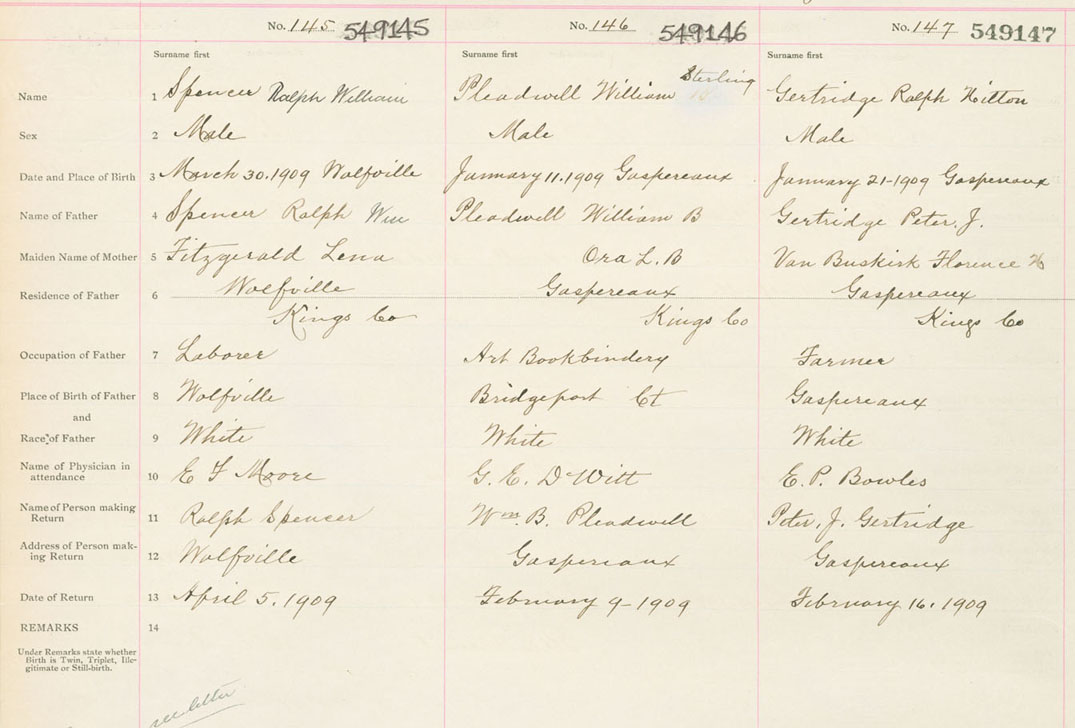 No. 145 549145 No. 146 549146 No. 147 549147
Surname first Surname first Surname first
Sterling
Name 1 Spencer Ralph William Pleadwell William Gertridge Ralph Hilton
Sex 2 Male Male Male
Date and Place of Birth 3 March 30. 1909 Wolfville January 11. 1909 Gaspereaux January 21-1909 Gaspereaux
Name of Father 4 Spencer Ralph Wm Pleadwell William B Gertridge Peter. J.
Maiden Name of Mother 5 Fitzgerald Lena Ora L. B Van Buskirk Florence H
Residence of Father 6 Wolfville Gaspereaux Gaspereaux
Kings Co Kings Co Kings Co
Occupation of Father 7 Laborer Art Bookbindery Farmer
Place of Birth of Father 8 Wolfville Bridgeport Ct Gaspereaux
and
Race of Father 9 White White White
Name of Physician in
attendance 10 E F Moore G. E. DWitt E. P. Bowles
Name of Person making
Return 11 Ralph Spencer Wm. B. Pleadwell Peter. J. Gertridge
Address of Person mak-
ing Return 12 Wolfville Gaspereaux Gaspereaux
Date of Return 13 April 5. 1909 February 9-1909 February 16. 1909
REMARKS 14
Under Remarks state whether
Birth is Twin, Triplet, Ille-
gitimate or Still-birth.
see letter